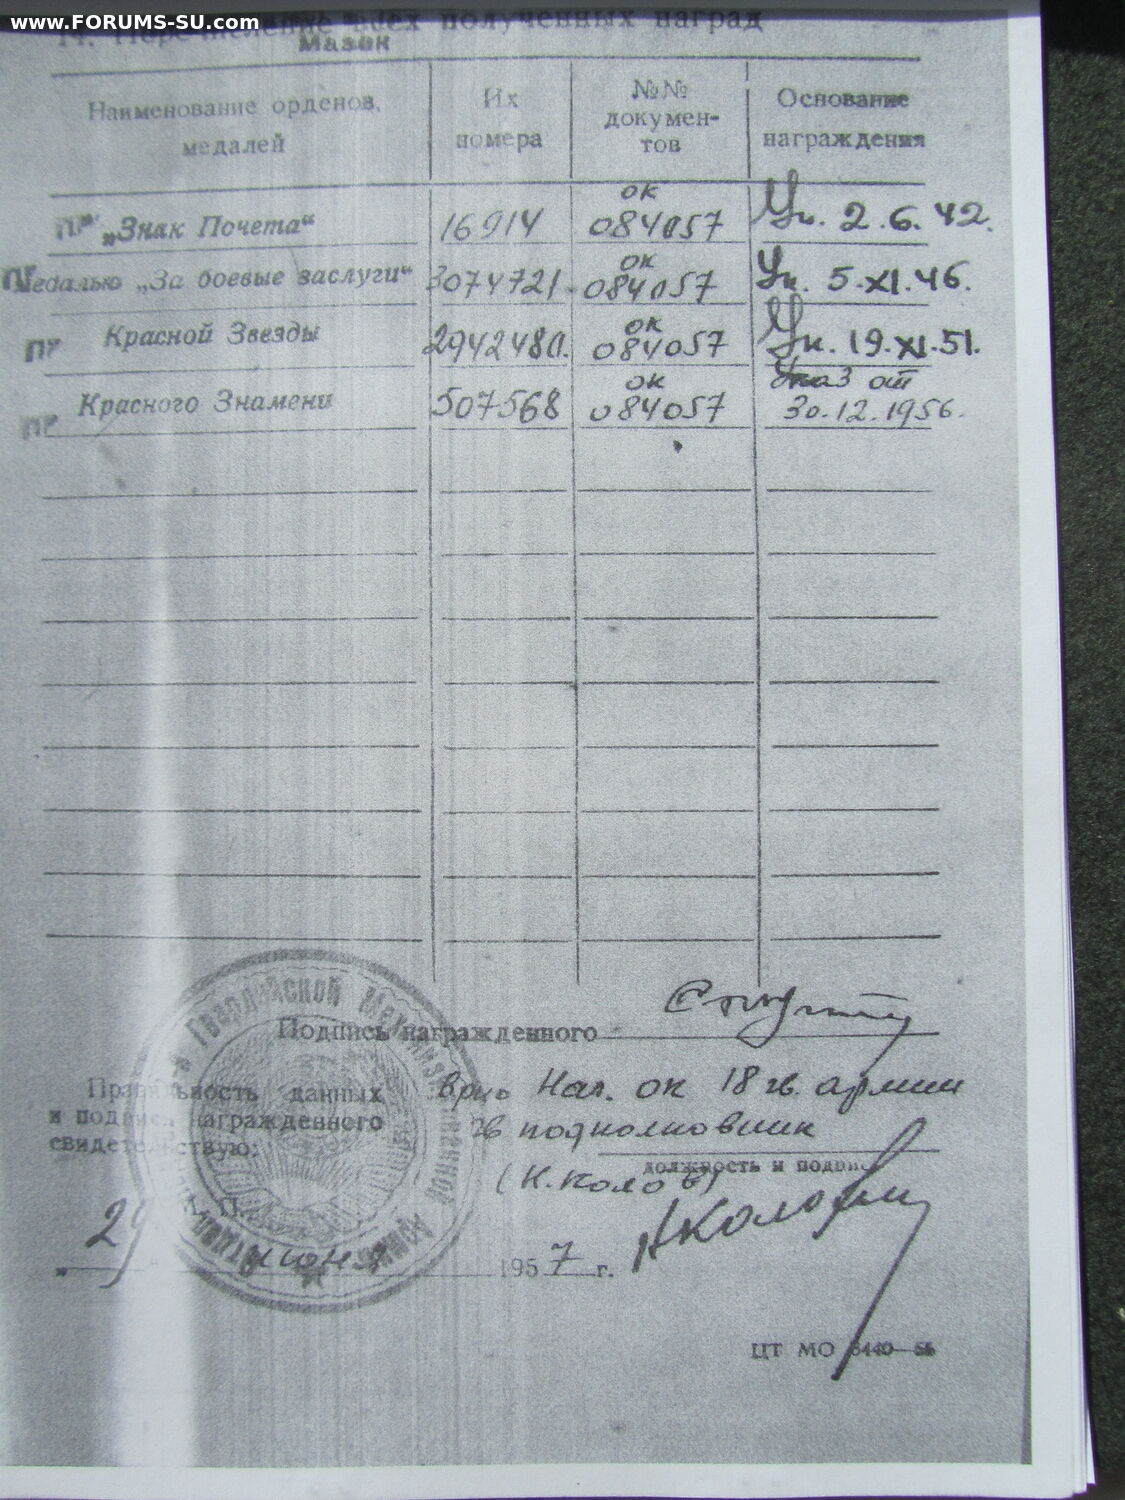 www.FORUMS-SU.com
всех полученных наград
Мазок
Наименование орденов, медалей
Их номера
№№ документов
Основание награждения
„Знак Почета“ 16914 ок 084057 Ук. 2.6.42.
Медалью „За боевые заслуги“ 3074721 ок 084057 Ук. 5.XI.46.
Красной Звезды 2942480. ок 084057 Ук. 19.XI.51.
Красного Знамени 507568 ок 084057 от 30.12.1956.
Подпись награжденного
Правильность данных
и подписи награжденного
свидетельствую:
Врио Нач. ок 18 гв. армии
гв подполковник
должность и подпись
29 июня 1957 г.
ЦТ МО